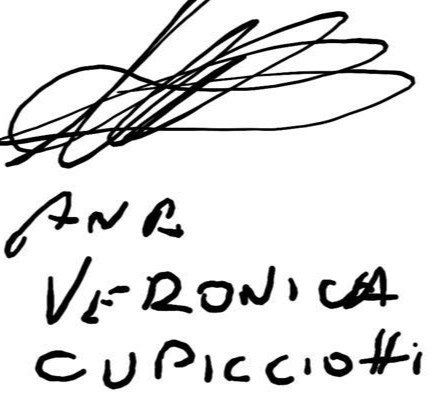 ANA
VERONICA
CUPICCIOtti